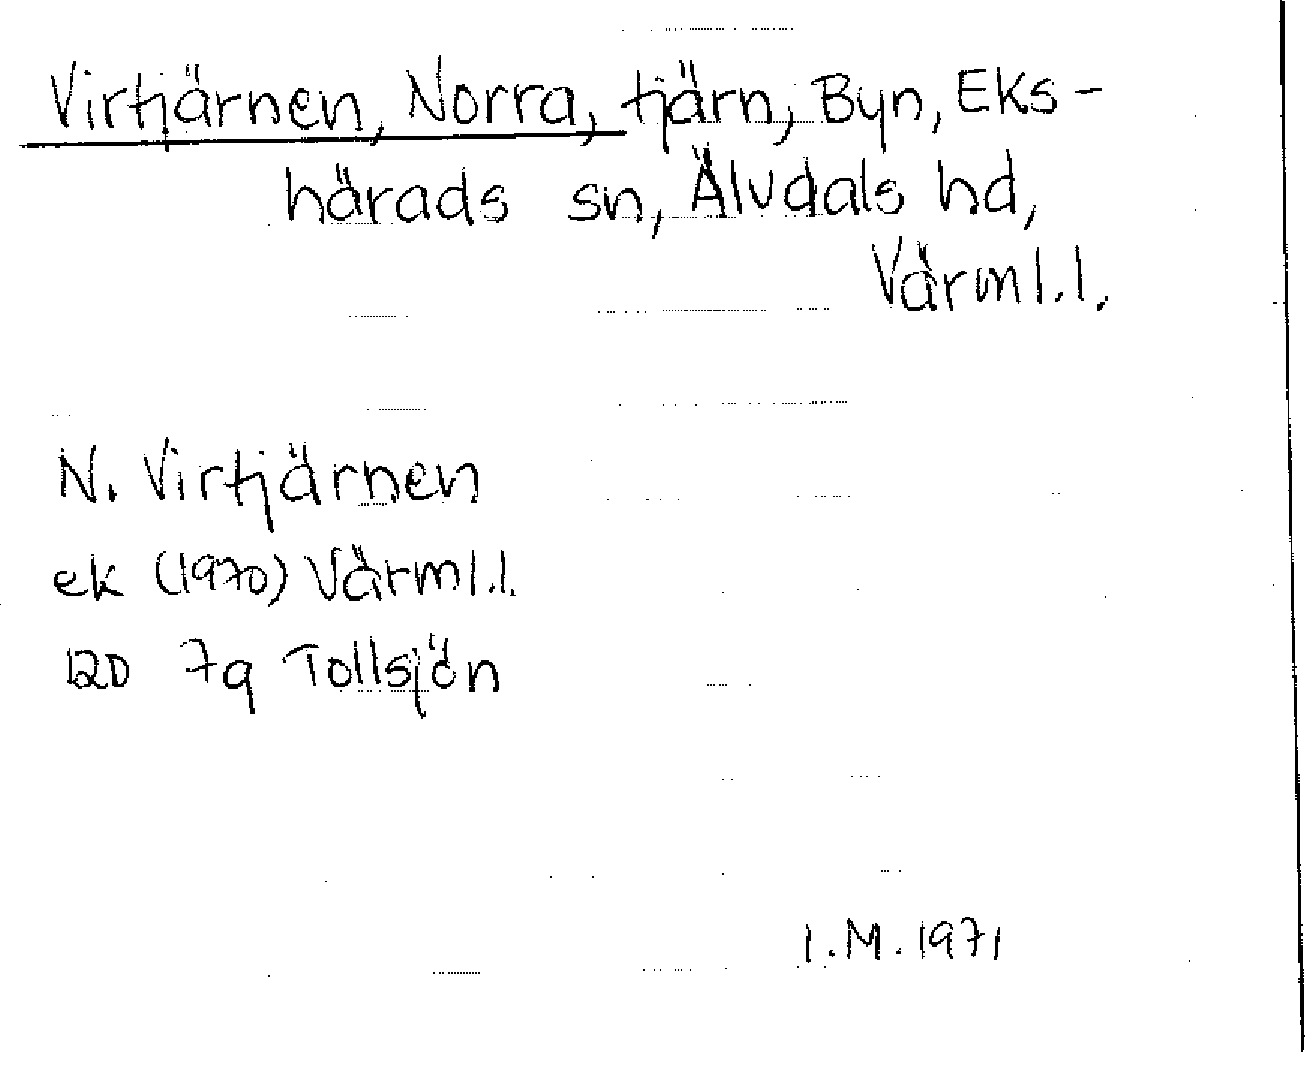 Virtjärnen, Norra, tjärn, Byn, Eks-
härads sn, Älvdals hd,
Värml.l.
N. Virtjärnen
ek (1970) Värml.l.
12D 7g Tollsjön
I.M. 1971